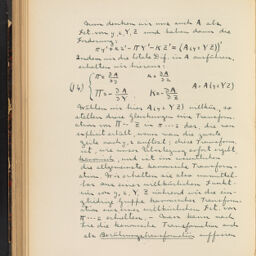 Nun denken wir uns auch A als
Fct. von y, z, Y, Z und haben dann die
Forderung:
πy' + κz' − ΠY' − KZ' = (A(yzYZ))'
Indem wir die totale Dif. in A ausführen,
erhalten wir hieraus:
(14) { π = ∂A/∂y κ = ∂A/∂z
Π = −∂A/∂Y K = −∂A/∂Z A = A(yzYZ)
Wählen wir hier A(yzYZ) willkür., so
stellen diese Gleichungen eine Transforma-
tion von Π··· Z in π···z dar, die
explicit erhält, wenn man die zweite
Zeile nach y, z auflöst; diese Transform.
ist, wie unsere Überlegung sofort zeigt
kanonisch, und ist im wesentlichen
die allgemeinste kanonische Transforma-
tion. Wir erhalten sie also unmittel-
bar aus einer willkürlichen Funkt-
ion von y, z, Y, Z während wir die ein-
gliedrige Gruppe kanonischer Transforma-
tion aus einer willkürlichen Fct. von
π···z erhalten. – Quasi kann nach
Lie die kanonische Transformation auch
als Berührungstransformation auffassen